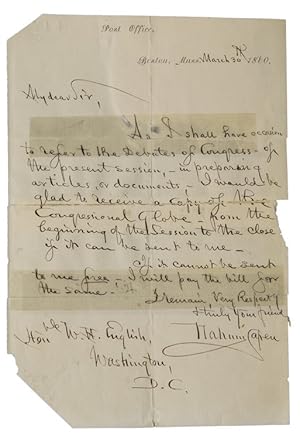 Post Office,
Boston, Mass. March 30th, 1860.
My dear Sir,
As I shall have occasion
to refer to the Debates of Congress of
the present session, in preparing
articles, or documents, I would be
glad to receive a copy of the
Congressional Globe - from the
beginning of the Session to the close
if it can be sent to me -
If it cannot be sent
to me free - I will pay the bill for
the same -
I remain, Very Respect'y
& truly your friend
Nahum Capen
Honble W. H. English,
Washington,
D.C.